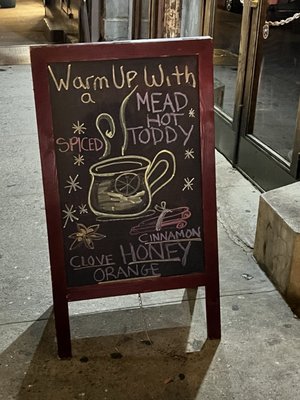 Warm Up With
a
MEAD
HOT
TODDY
SPICED
CINNAMON
CLOVE HONEY
ORANGE